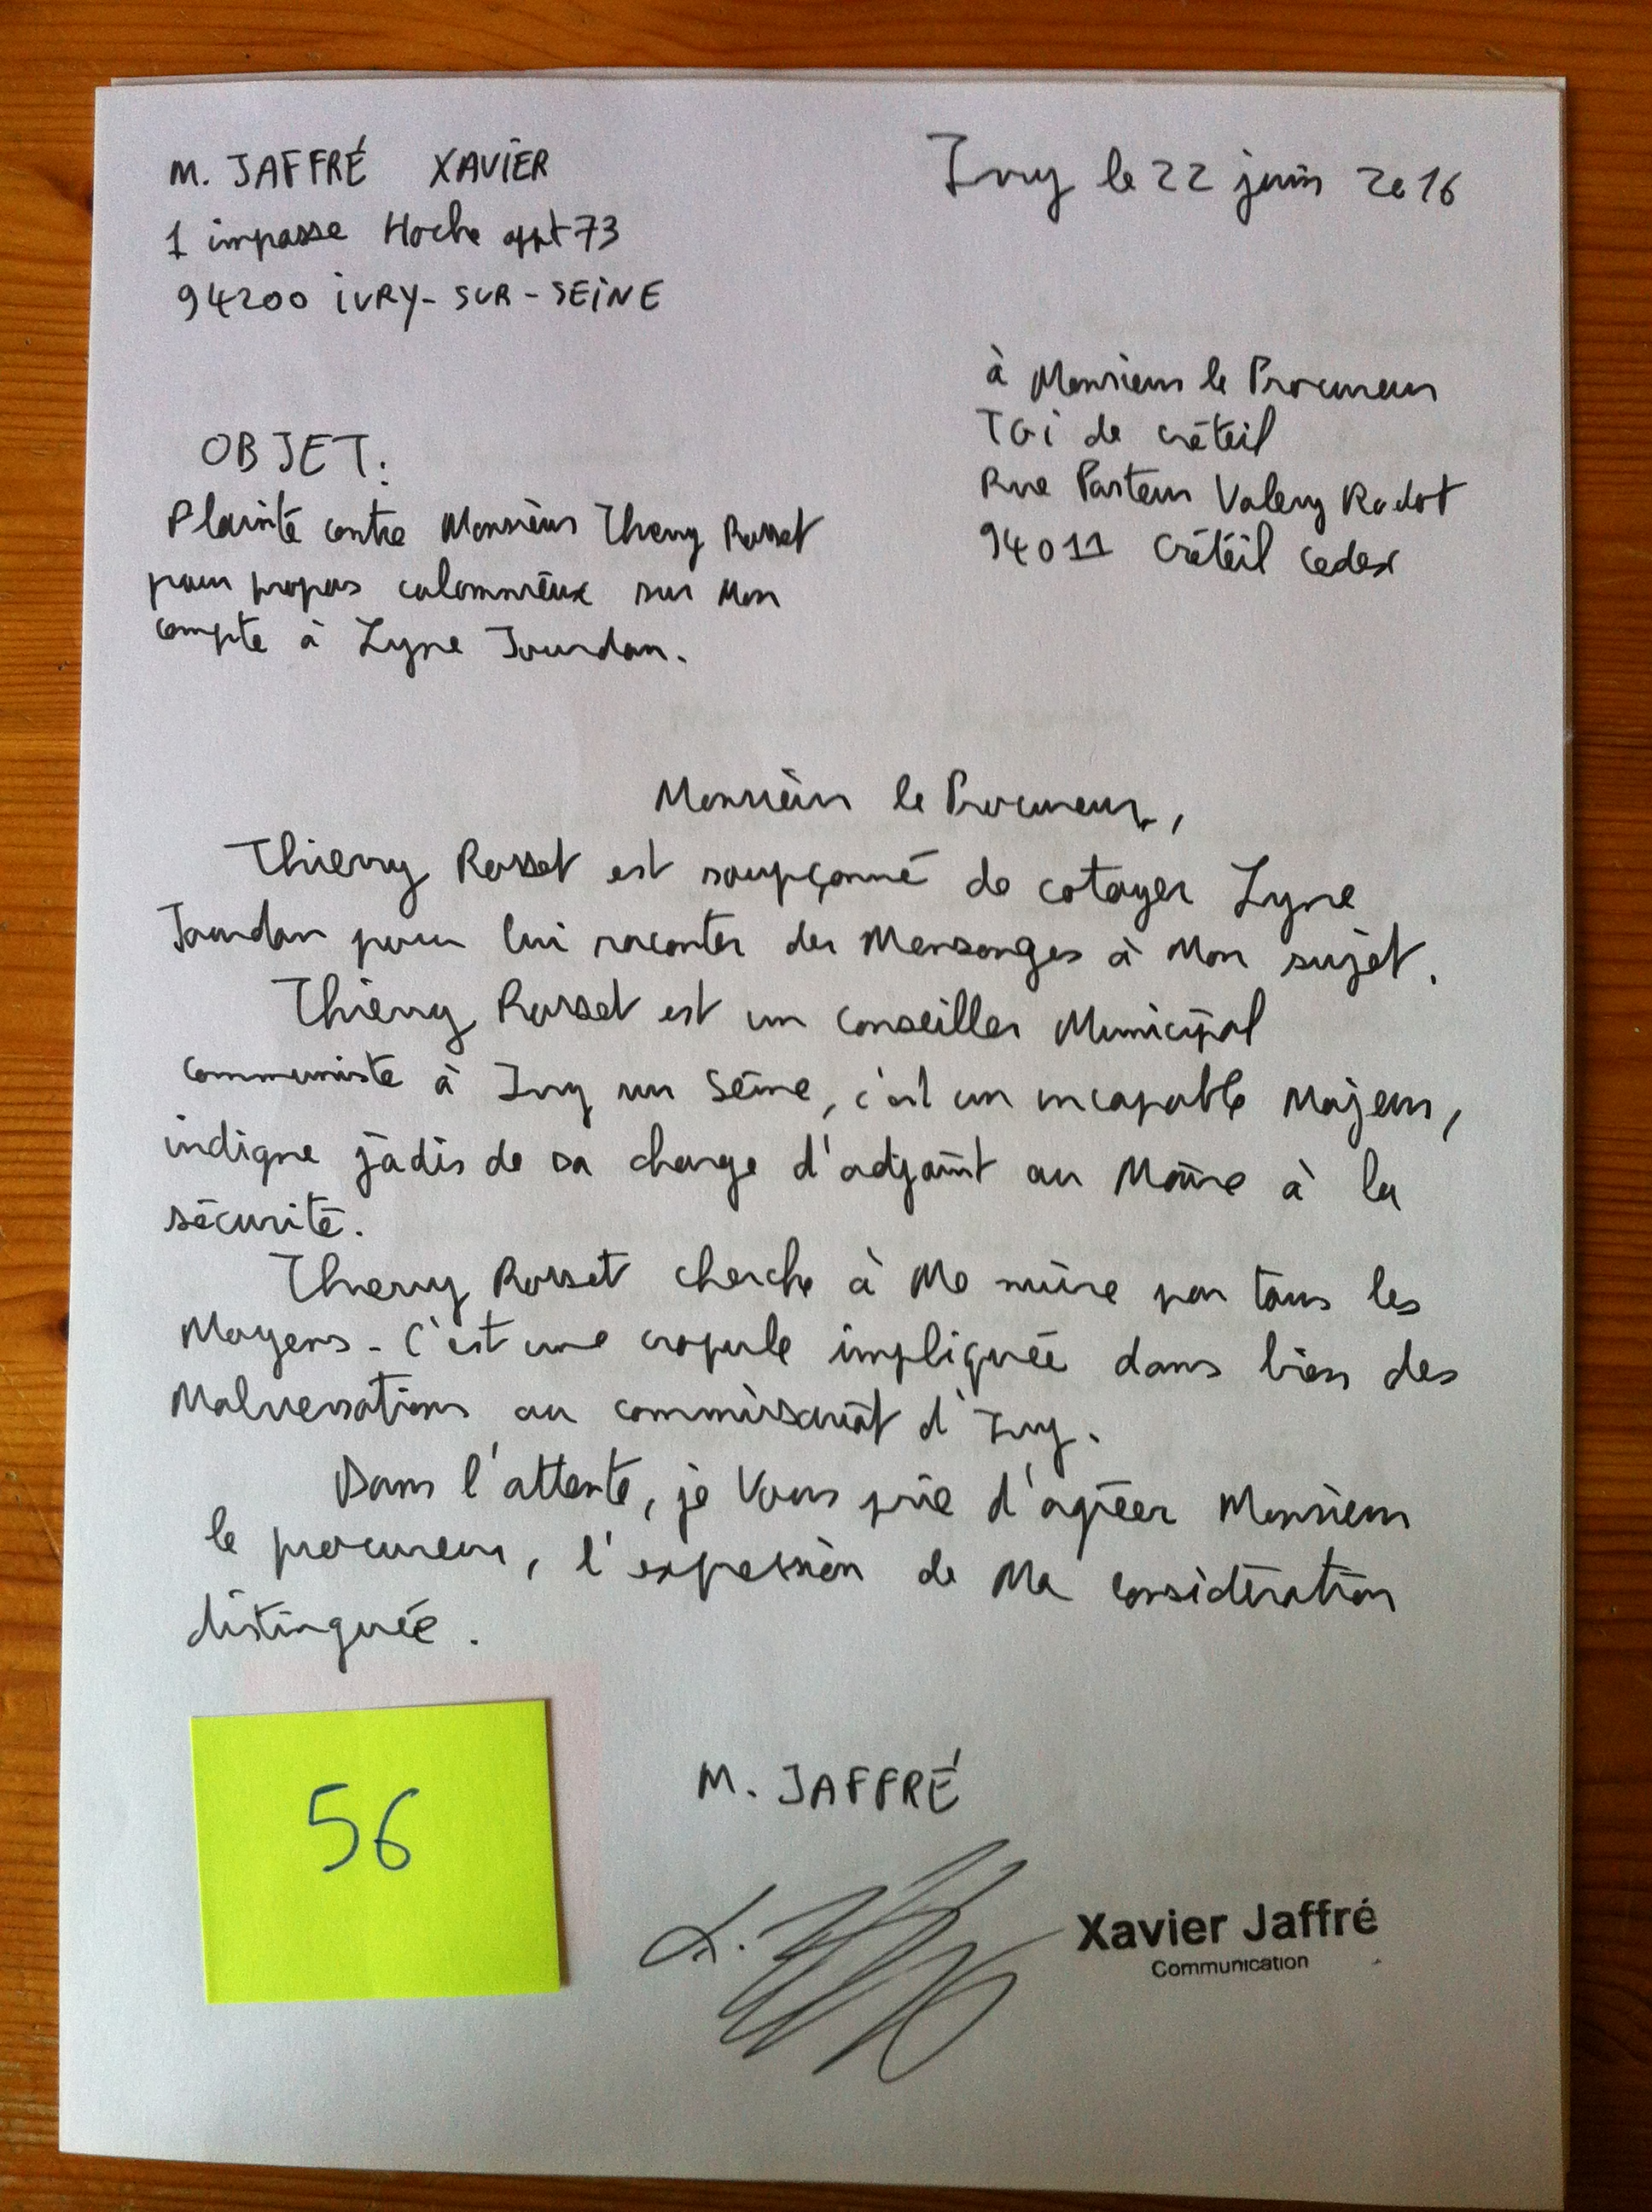 M. JAFFRÉ XAVIER
1 impasse Hoche appt 73
94200 IVRY-SUR-SEINE
Ivry le 22 juin 2016
à Monsieur le Procureur
TGI de créteil
Rue Pasteur Valery Radot
94011 Créteil cedex
OBJET:
Plainte contre Monsieur Thierry Rosset
pour propos calomnieux sur Mon
compte à Lyne Jourdan.
Monsieur le Procureur,
Thierry Rosset est soupçonné de cotoyer Lyne
Jourdan pour lui raconter des Mensonges à Mon sujet.
Thierry Rosset est un conseiller Municipal
communiste à Ivry sur Seine, c'est un incapable Majeur,
indigne jadis de sa charge d'adjoint au Maire à la
sécurité.
Thierry Rosset cherche à Me nuire par tous les
Moyens - C'est une crapule impliquée dans bien des
Malversations au commissariat d'Ivry.
Dans l'attente, je Vous prie d'agréer Monsieur
le procureur, l'expression de Ma considération
distinguée.
56
M. JAFFRÉ
Xavier Jaffré
Communication